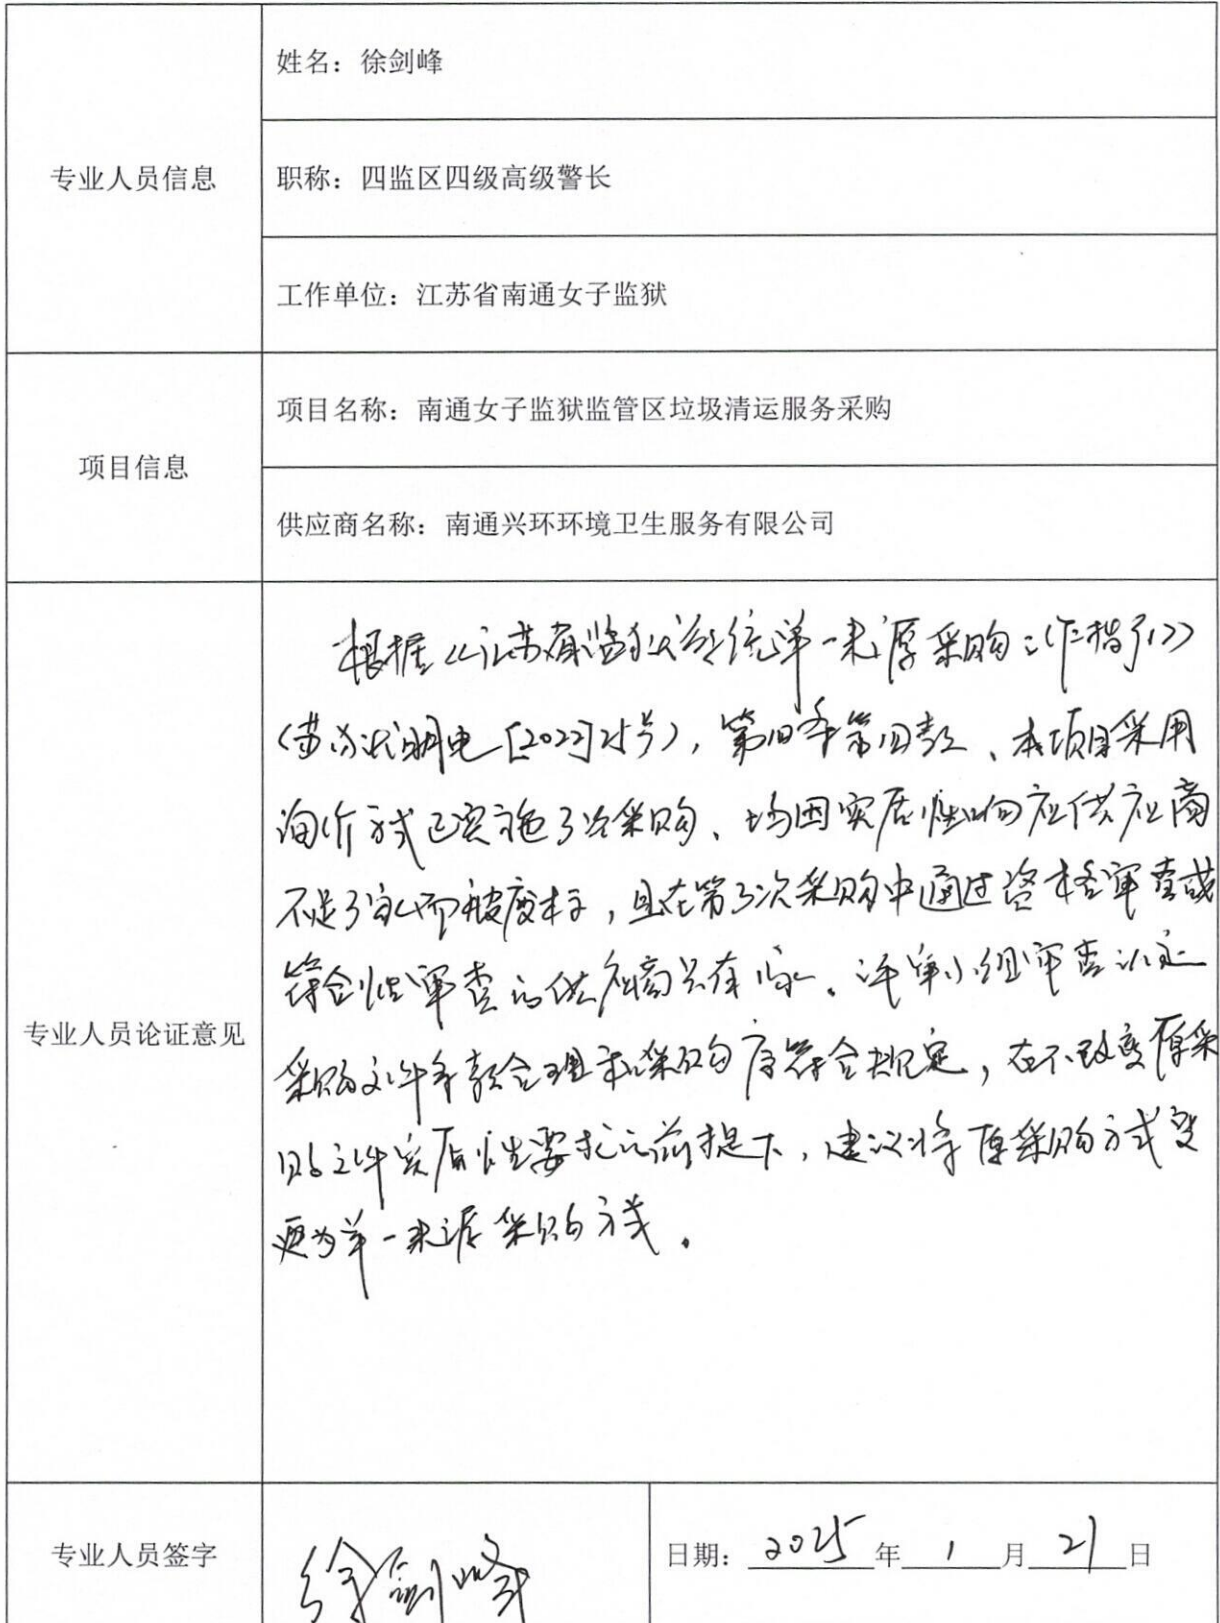 姓名：徐剑峰
专业人员信息
职称：四监区四级高级警长
工作单位：江苏省南通女子监狱
项目名称：南通女子监狱监管区垃圾清运服务采购
项目信息
供应商名称：南通兴环环境卫生服务有限公司
根据《江苏省监狱系统单一来源采购工作指引》
（苏狱明电[2022]25号），第四条第四款、本项目采用
询价方式已实施3次采购、均因实质性响应供应商
不足3家而被废标，且在第3次采购中通过资格审查或
符合性审查的供应商只有1家。评审小组审查认定
采购文件条款合理和采购程序符合规定，在不改变原采
购文件实质性要求的前提下，建议将原采购方式变
更为单一来源采购方式。
专业人员论证意见
专业人员签字
徐剑峰
日期：2025年1月21日